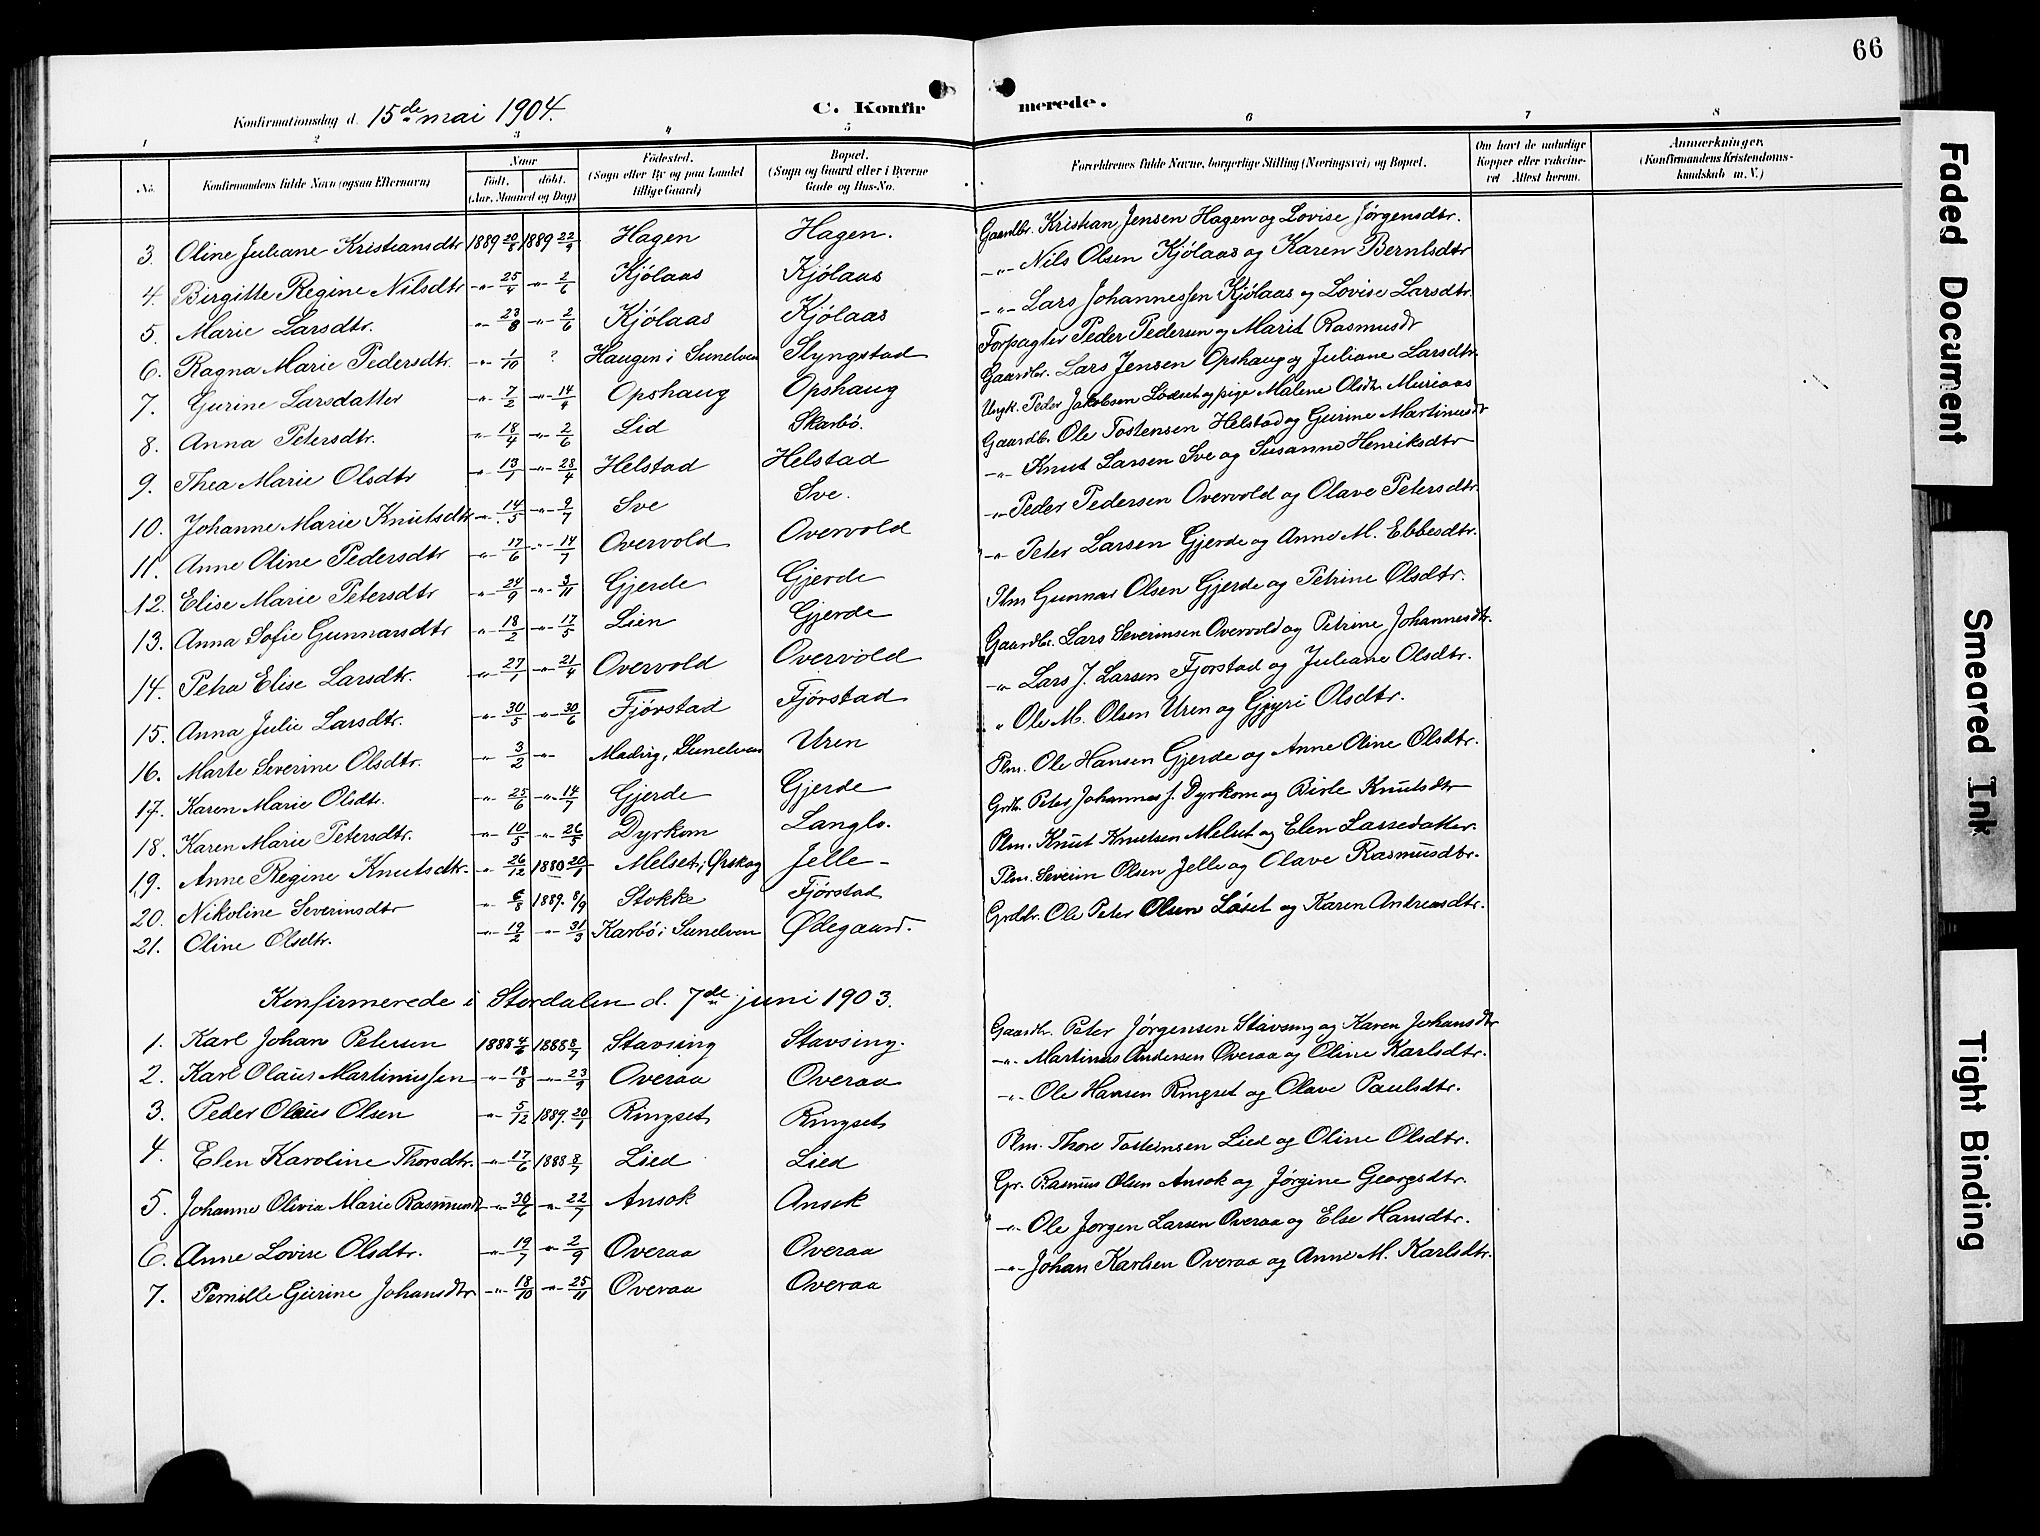 66
Konfirmationsdag d. 15de mai 1904.
C. Konfirmerede.
1 2 3 4 5 6 7 8
No. Konfirmandens fulde Navn (ogsaa Efternavn) Naar født. døbt. (Aar, Maaned og Dag) Fødested. (Sogn eller By og paa Landet tillige Gaard) Bopæl. (Sogn og Gaard eller i Byerne Gade og Hus-No. Forældrenes fulde Navne, borgerlige Stilling (Næringsvei) og Bopæl. Om havt de naturlige Kopper eller vakcineret Attest herom. Anmærkninger. (Konfirmandens Kristendomskundskab m. V.)
3. Oline Juliane Kristiansdtr 1889 20/8 1889 22/9 Hagen Hagen. Gaardbr. Kristian Jensen Hagen og Lovise Jørgensdtr.
4. Birgitte Regine Nilsdtr -"- 25/4 -"- 2/6 Kjölaas Kjölaas -"- Nils Olsen Kjölaas og Karen Berntsdtr
5. Marie Larsdtr. -"- 23/8 -"- 2/6 Kjölaas Kjölaas -"- Lars Johannessen Kjölaas og Lovise Larsdtr.
6. Ragna Marie Pedersdtr. -"- 1/10 ? Haugen i Sunelven Styngstad Forpagter Peder Pedersen og Marit Rasmusdr
7. Gurine Larsdatter -"- 7/2 -"- 14/4 Opshaug Opshaug Gaardbr. Lars Jensen Opshaug og Juliane Larsdtr.
8. Anna Petersdtr. -"- 18/4 -"- 2/6 Lid Skarbö. Ungk. Peder Jakobsen Lødset og pige Malene Olsdtr. Muriaas
9. Thea Marie Olsdtr -"- 13/1 -"- 28/4 Helstad Helstad Gaardb. Ole Tostensen Helstad og Gurine Martinusdr
10. Johanne Marie Knutsdtr -"- 14/5 -"- 9/7 Sve Sve. -"- Knut Larsen Sve og Susanne Henriksdtr
11. Anne Oline Pedersdtr -"- 17/6 -"- 14/7 Overvold Overvold -"- Peder Pedersen Overvold og Olave Petersdtr.
12. Elise Marie Petersdtr -"- 24/9 -"- 3/11 Gjerde Gjerde -"- Peter Larsen Gjerde og Anne M. Ebbesdtr.
13. Anna Sofie Gunnarsdtr -"- 18/2 -"- 17/5 Lien Gjerde Plm Gunnar Olsen Gjerde og Petrine Olsdtr.
14. Petra Elise Larsdtr. -"- 27/1 -"- 21/4 Overvold Overvold Gaardbr. Lars Severinsen Overvold og Petrine Johannesdtr.
15. Anna Julie Larsdtr. -"- 30/5 -"- 30/6 Fjörstad Fjörstad -"- Lars J. Larsen Fjorstad og Juliane Olsdtr.
16. Marte Severine Olsdtr. -"- 3/2 -"- Sunelven Uren " Ole M. Olsen Uren og Gjyri Olsdtr.
17. Karen Marie Olsdtr. -"- 25/6 -"- 14/7 Gjerde Gjerde Plm. Ole Hansen Gjerde og Anne Oline Olsdtr.
18. Karen Marie Petersdtr. -"- 10/5 -"- 26/5 Dyrkorn Langlo. Grdb. Peter Johannes s. Dyrkorn og Birte Knutsdtr
19. Anne Regine Knutsdtr. -"- 26/12 1880 20/1 Melset, Ørskog Jelle - Plm. Knut Knutsen Melset og Elen Lassedatter.
20. Nikoline Severinsdtr " 6/8 1889. 8/9 Stokke Fjörstad Plm. Severin Olsen Jelle og Olave Rasmusdtr.
21. Oline Olsdtr. -"- 19/2 -"- 31/3 Karbö i Sunelven Ødegaard. Grdbr. Ole Peter Olsen Löset og Karen Andreasdtr.
Konfirmerede i Stordalen d. 7de juni 1903.
1. Karl Johan Petersen 1888 4/6 1888 8/7 Stavsing Stavsing. Gaardbr. Peter Jørgensen Stavsing og Karen Johansdtr
2. Karl Olaus Martinussen -"- 18/8 -"- 23/9 Overaa Overaa -"- Martinus Andersen Overaa og Oline Karlsdtr.
3. Peder Olaus Olsen -"- 5/12 1889. 20/1 Ringset Ringset -"- Ole Hansen Ringset og Olave Paulsdtr.
4. Elen Karoline Thorsdtr. -"- 17/6 1888 8/7 Lied Lied Plm. Thore Tosteinsen Lied og Oline Olsdtr.
5. Johanne Olivia Marie Rasmusdr -"- 30/6 -"- 22/7 Ansok Ansok Gr. Rasmus Olsen Ansok og Jørgine Georgsdtr.
6. Anne Lovise Olsdtr. -"- 19/7 -"- 2/9 Overaa Overaa -"- Ole Jørgen Larsen Overaa og Else Hansdtr.
7. Pernille Gurine Johansdtr -"- 18/10 -"- 25/11 Overaa Overaa -"- Johan Karlsen Overaa og Anne M. Karlsdtr.
Faded Document
Smeared Ink
Tight Binding